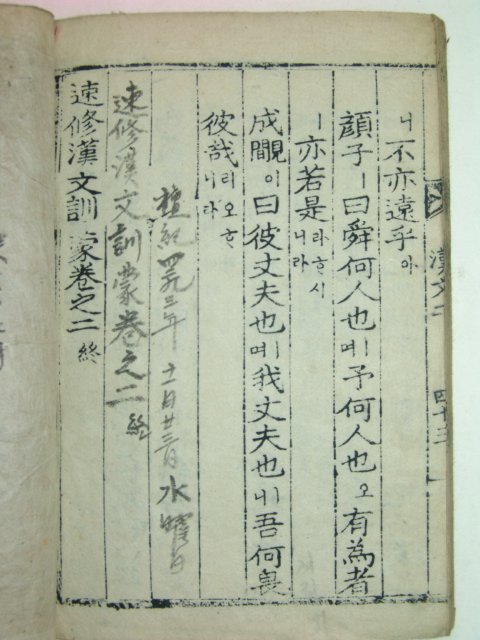 漢文二 四十三
니不亦遠乎아
顔子ㅣ曰舜何人也며予何人也오有為者
ㅣ亦若是라ᄒᆞ시니라
成覵이曰彼丈夫也며我丈夫也니吾何畏
彼哉리오ᄒᆞ니라
檀紀四二九三年 十一月廿三日 水曜日
速修漢文訓蒙卷之二 終
速修漢文訓蒙卷之二 終